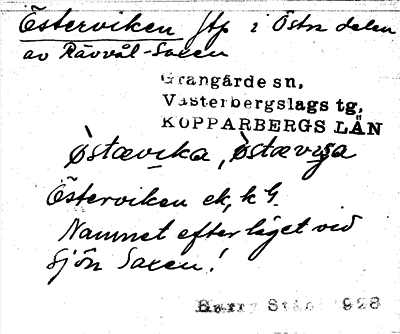 Österviken ftp i Östra delen
av Rävvål-Saxen
Grangärde sn,
Västerbergslags tg,
KOPPARBERGS LÄN
Östævika, Östæviga
Österviken ek, k G.
Namnet efter läget vid
sjön Saxen!
Harry Ståhl 1928